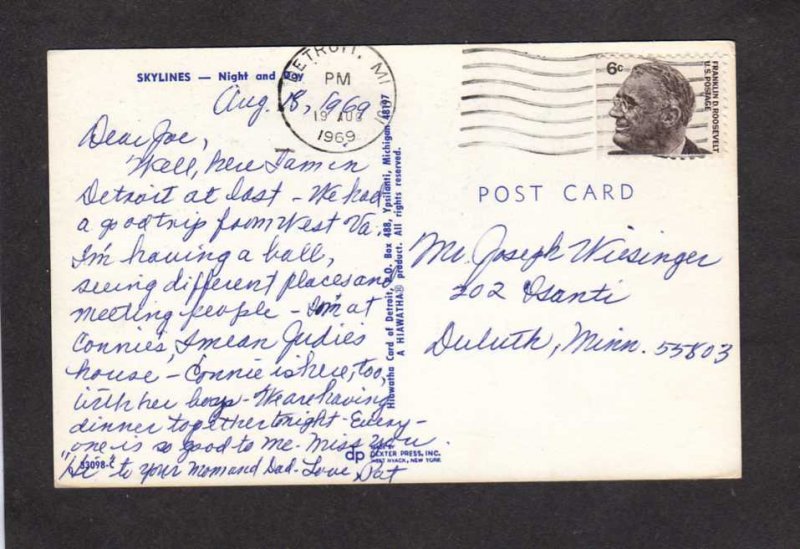 SKYLINES — Night and Day
DETROIT, MI
PM
19 AUG
1969
6c
FRANKLIN D. ROOSEVELT
U.S. POSTAGE
Aug. 18, 1969
Dear Joe,
Well, here I am in
Detroit at last - We had
a good trip from West Va.
I'm having a ball,
seeing different places and
meeting people - I'm at
Connie's, I mean Judies
house - Connie is here, too,
with her boys - We are having
dinner together tonight - Every-
one is so good to me - Miss you.
"Hi" to your Mom and Dad - Love, Pat
33098-C
Hiawatha Card of Detroit, P.O. Box 488, Ypsilanti, Michigan 48197
A HIAWATHA® product. All rights reserved.
POST CARD
Mr. Joseph Wiesinger
202 Isanti
Duluth, Minn. 55803
dp
DEXTER PRESS, INC.
WEST NYACK, NEW YORK